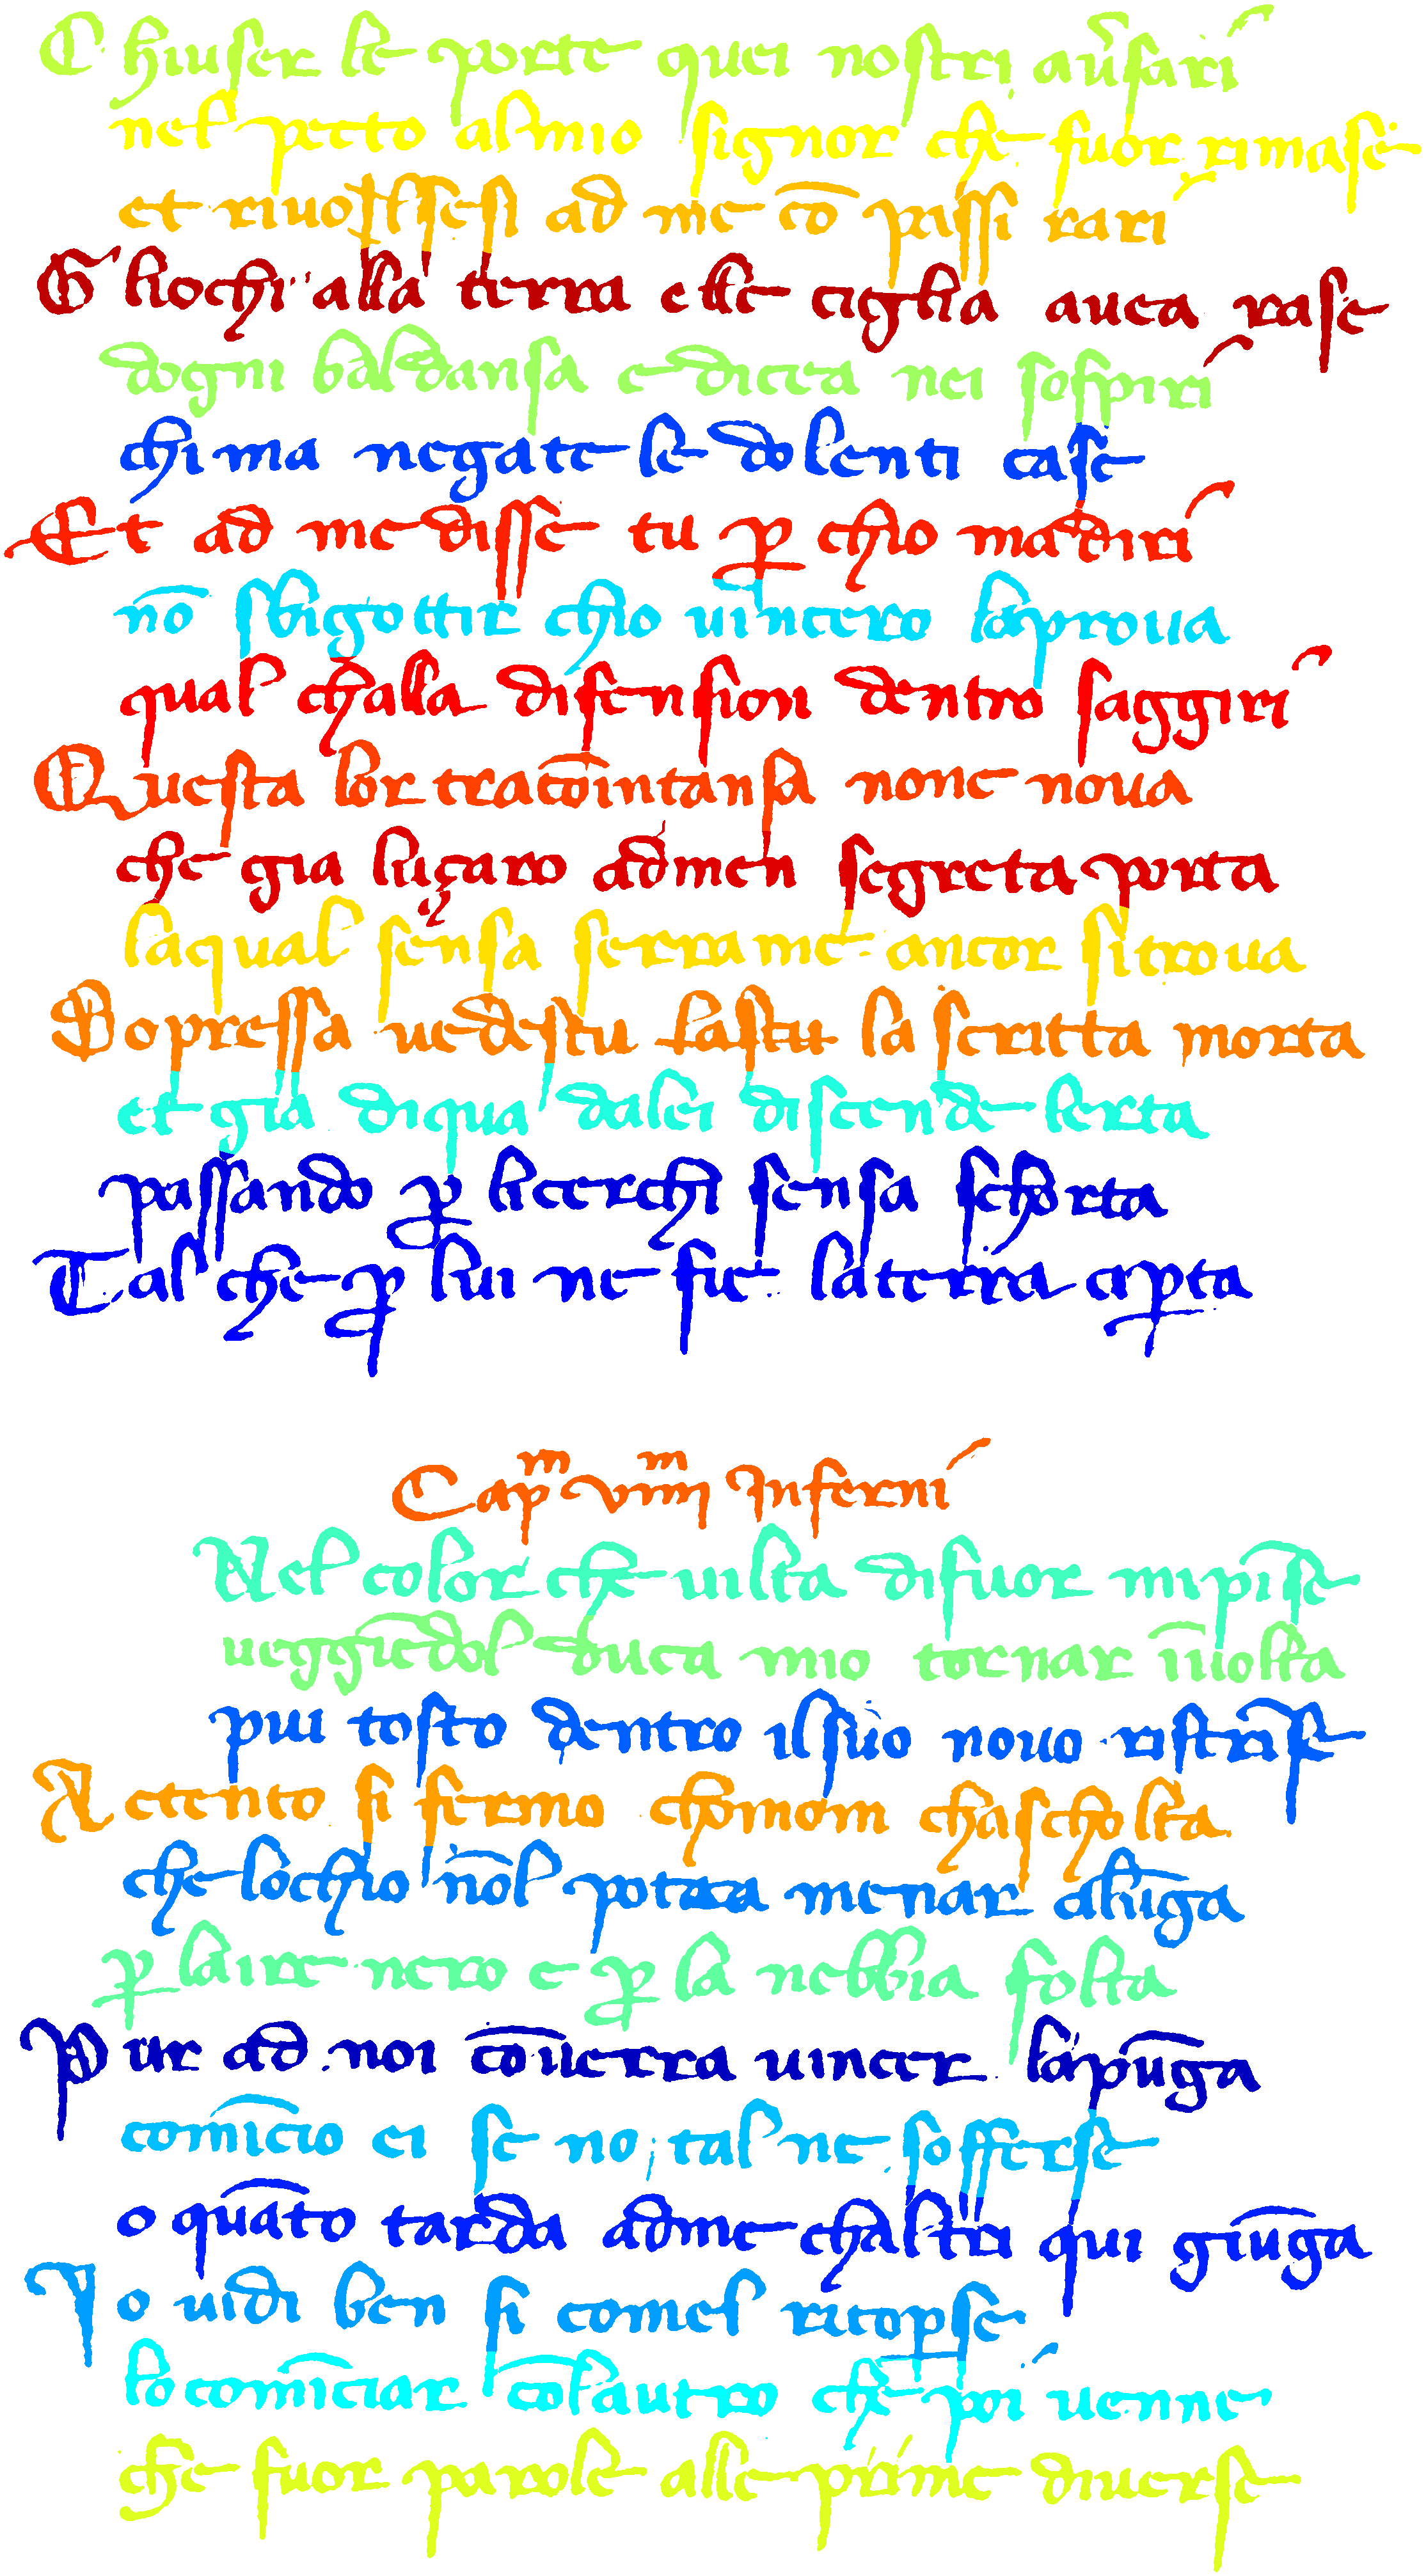 Chiuser le porte quei nostri au̅sari
nel pecto almio signor che fuor rimase
et riuolsesi ad me co̅ pissi rari
Gliochi alla terra elle ciglia auea rase
dogni baldansa e dicea nei sospiri
chi ma negate le dolenti case
Et ad me disse tu ꝑ chio madiri
no̅ sbigottir chio uincero laproua
qual challa difension dentro saggiri
Questa lor tracointansa none noua
che gia luçaro admen segreta porta
laqual sensa serrame ancor sitroua
Sopressa uedestu la scritta morta
et gia diqua dalei discende lerta
passando ꝑ licerchi sensa schorta
Tal che ꝑ lui ne fie laterra aꝑta
Capm viiii Inferni
Nel color che uilta difuor mipi̅se
ueggie̅dol duca mio tornar i̅uolta
piu tosto dentro ilsuo nouo ristri̅se
Actento si fermo chomom chascholta
che lochio no̅l potea menar alu̅ga
ꝑ laire nero e ꝑ la nebbia folta
Pur ad noi co̅uerra uincer lapu̅ga
comi̅cio ei se no tal ne sofferse
o qua̅to tarda adme chaltri qui giu̅ga
Io uidi ben si comel ricoꝑse
locomi̅ciar co̅lautro che poi uenne
che fuor parole alle prime diuerse